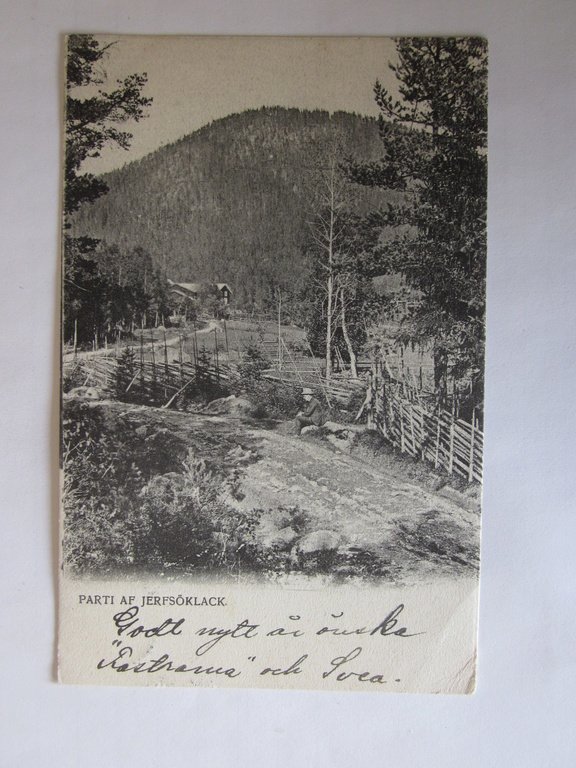 PARTI AF JERFSÖKLACK.
Godt nytt år önska
"Fastrama" och Svea.